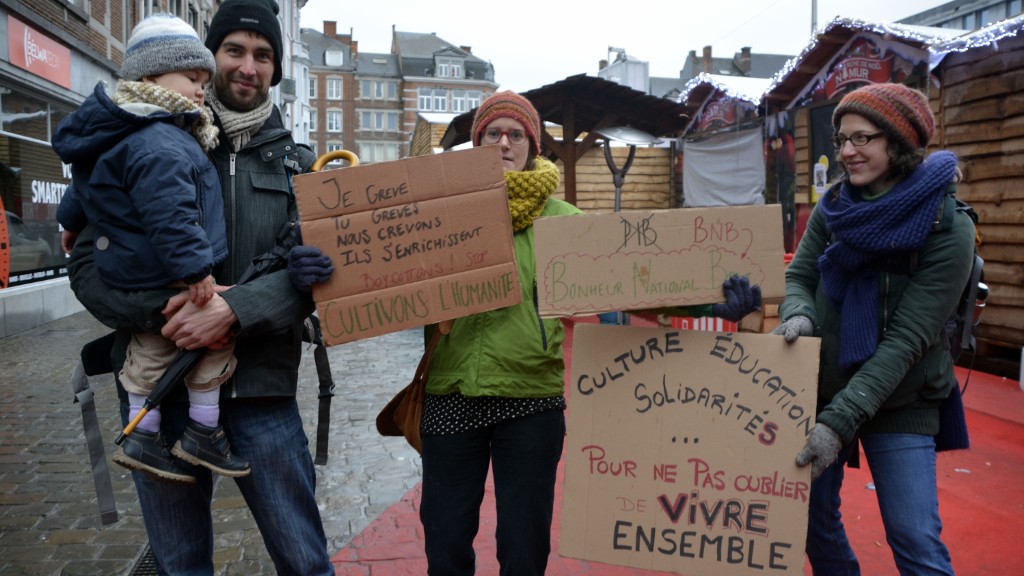 JE GRÈVE
TU GRÈVES
NOUS CREVONS
ILS S'ENRICHISSENT
STOP
CULTIVONS L'HUMANITÉ
PIB BNB
BONHEUR NATIONAL
CULTURE ÉDUCATION
SOLIDARITÉS
...
POUR NE PAS OUBLIER
DE VIVRE
ENSEMBLE
SMART
NAMUR